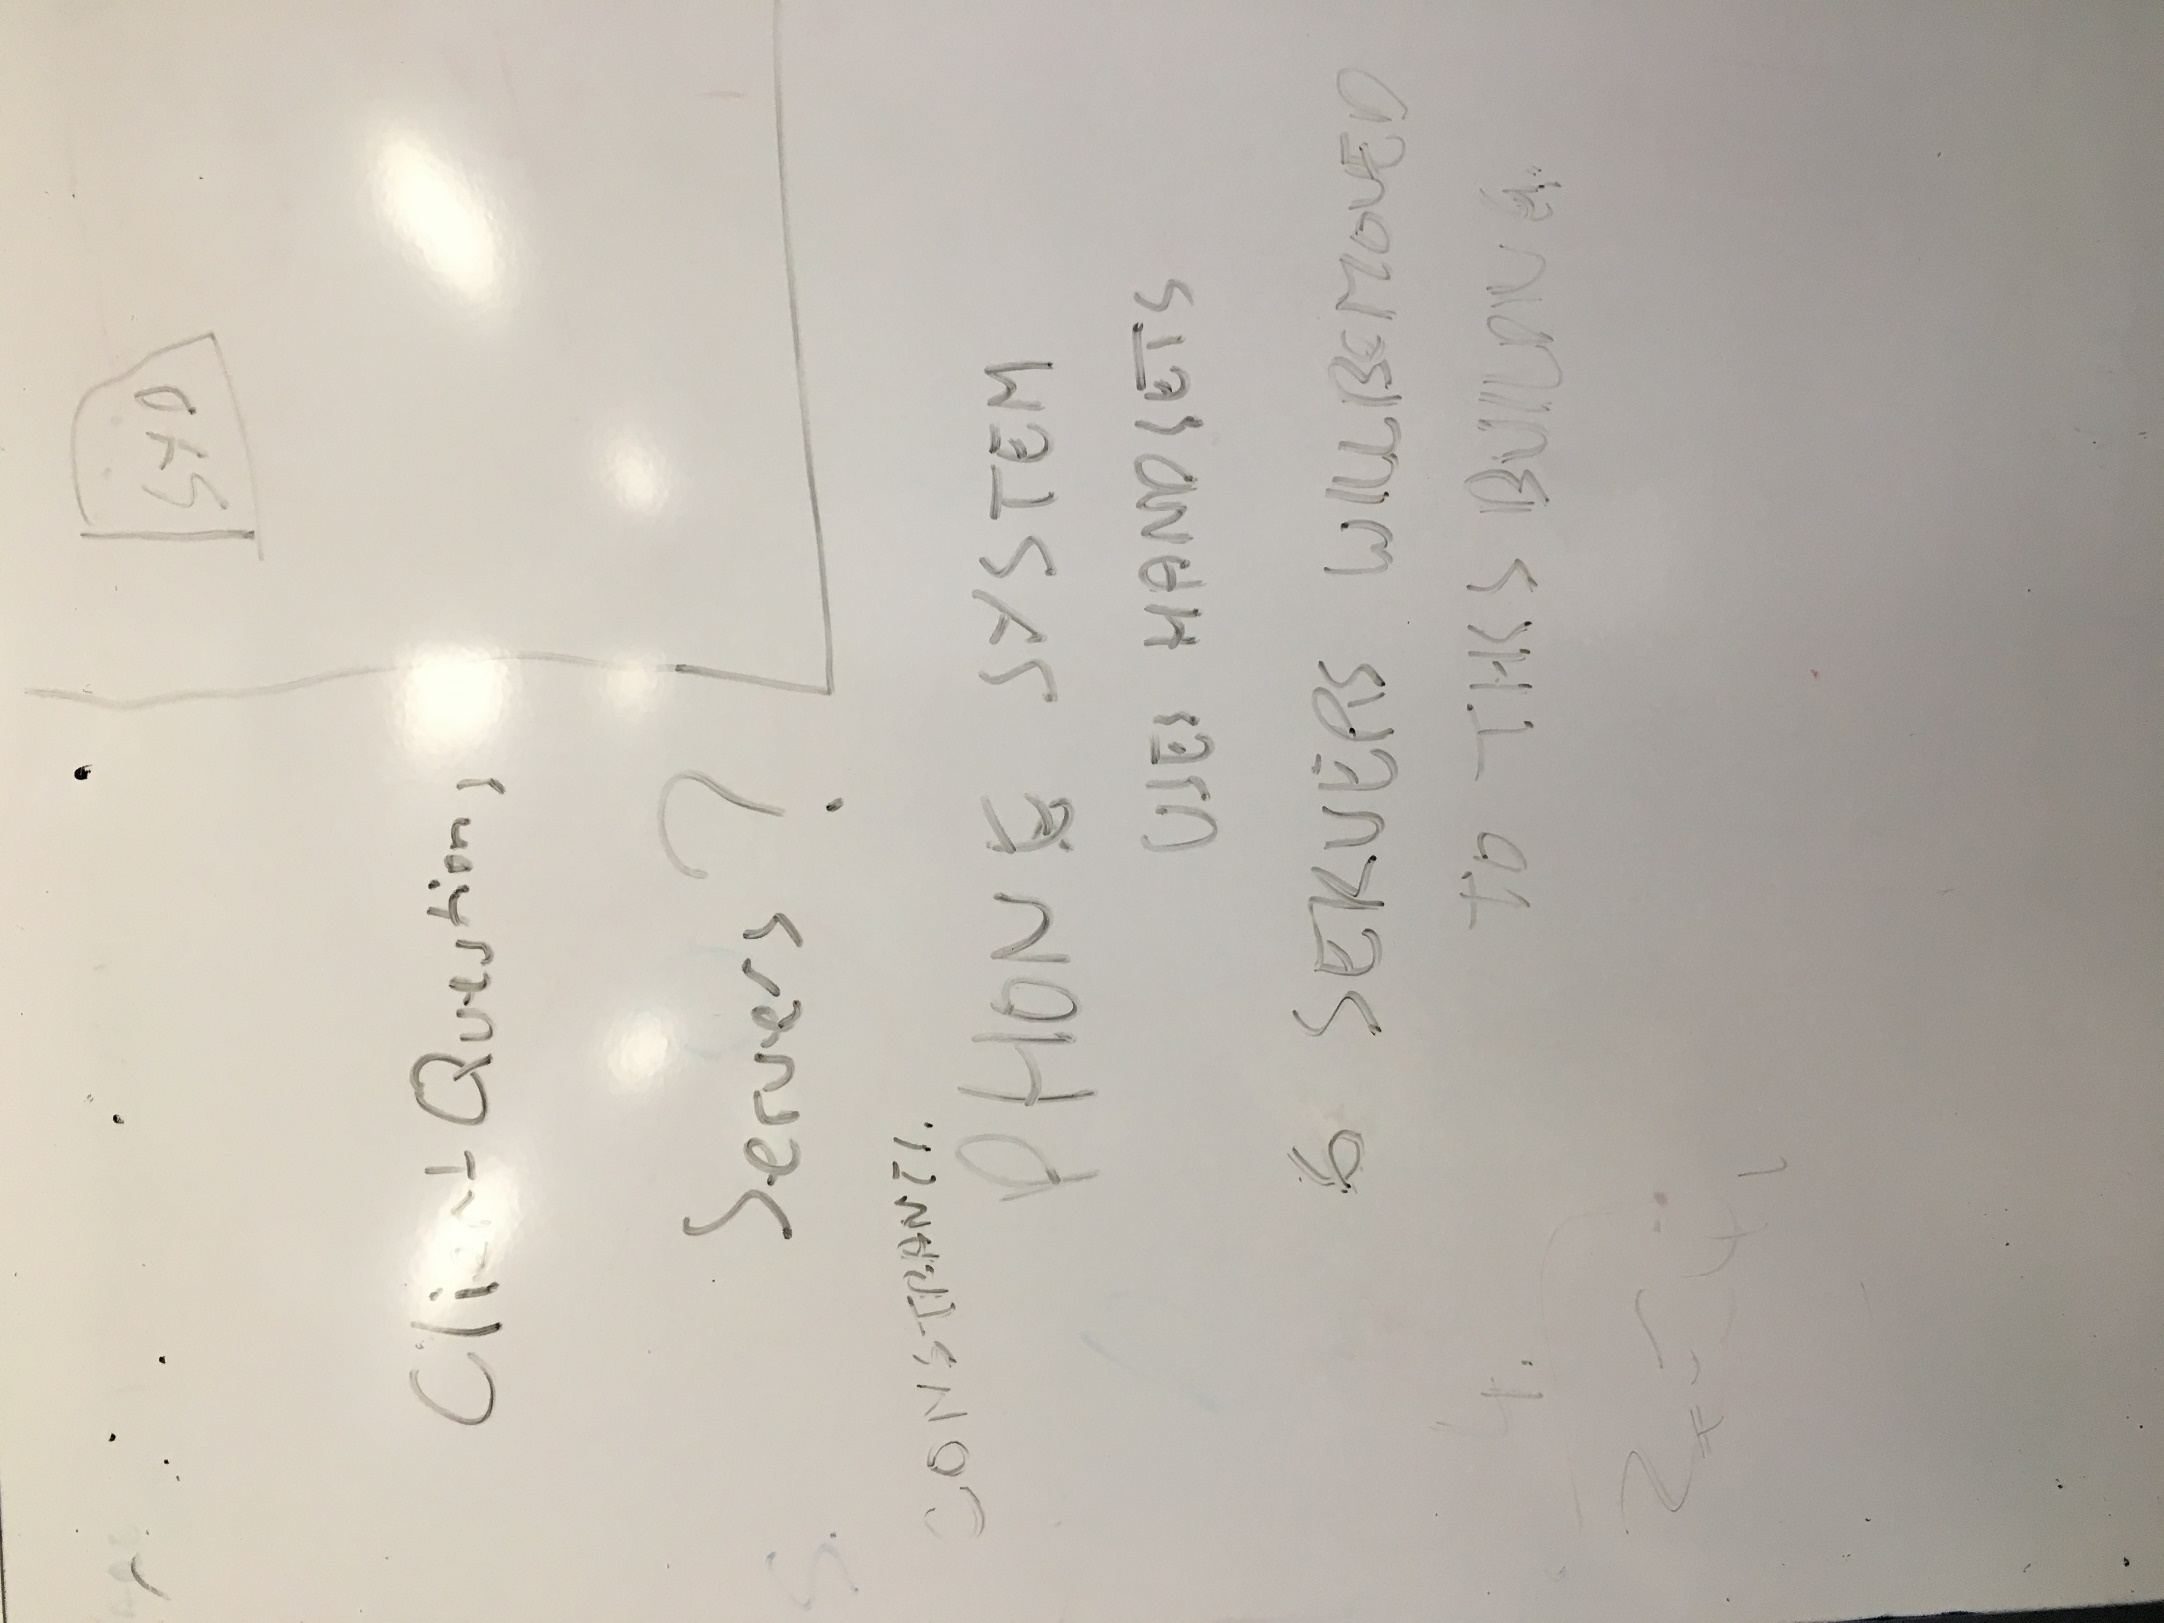 SXD
Client Questions
Servers ?
CONSTRAINTS.
PHONE SYSTEM
USER HANDSETS
* SERVERS WILL BE MOVED
TO THIS BUILDING.